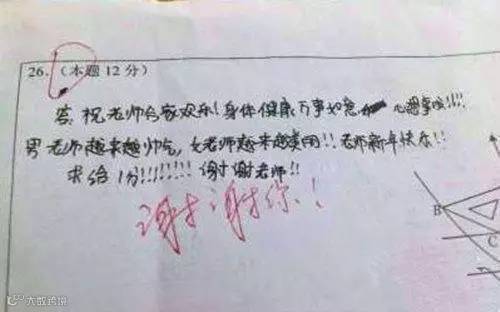 26.（本题12分）
答：祝老师合家欢乐！身体健康 万事如意 心想事成！！！！
男老师越来越帅气，女老师越来越美丽！！老师新年快乐！！
求给1分！！！！！！！！谢谢老师！！
谢谢你！
B
C
大数跨境